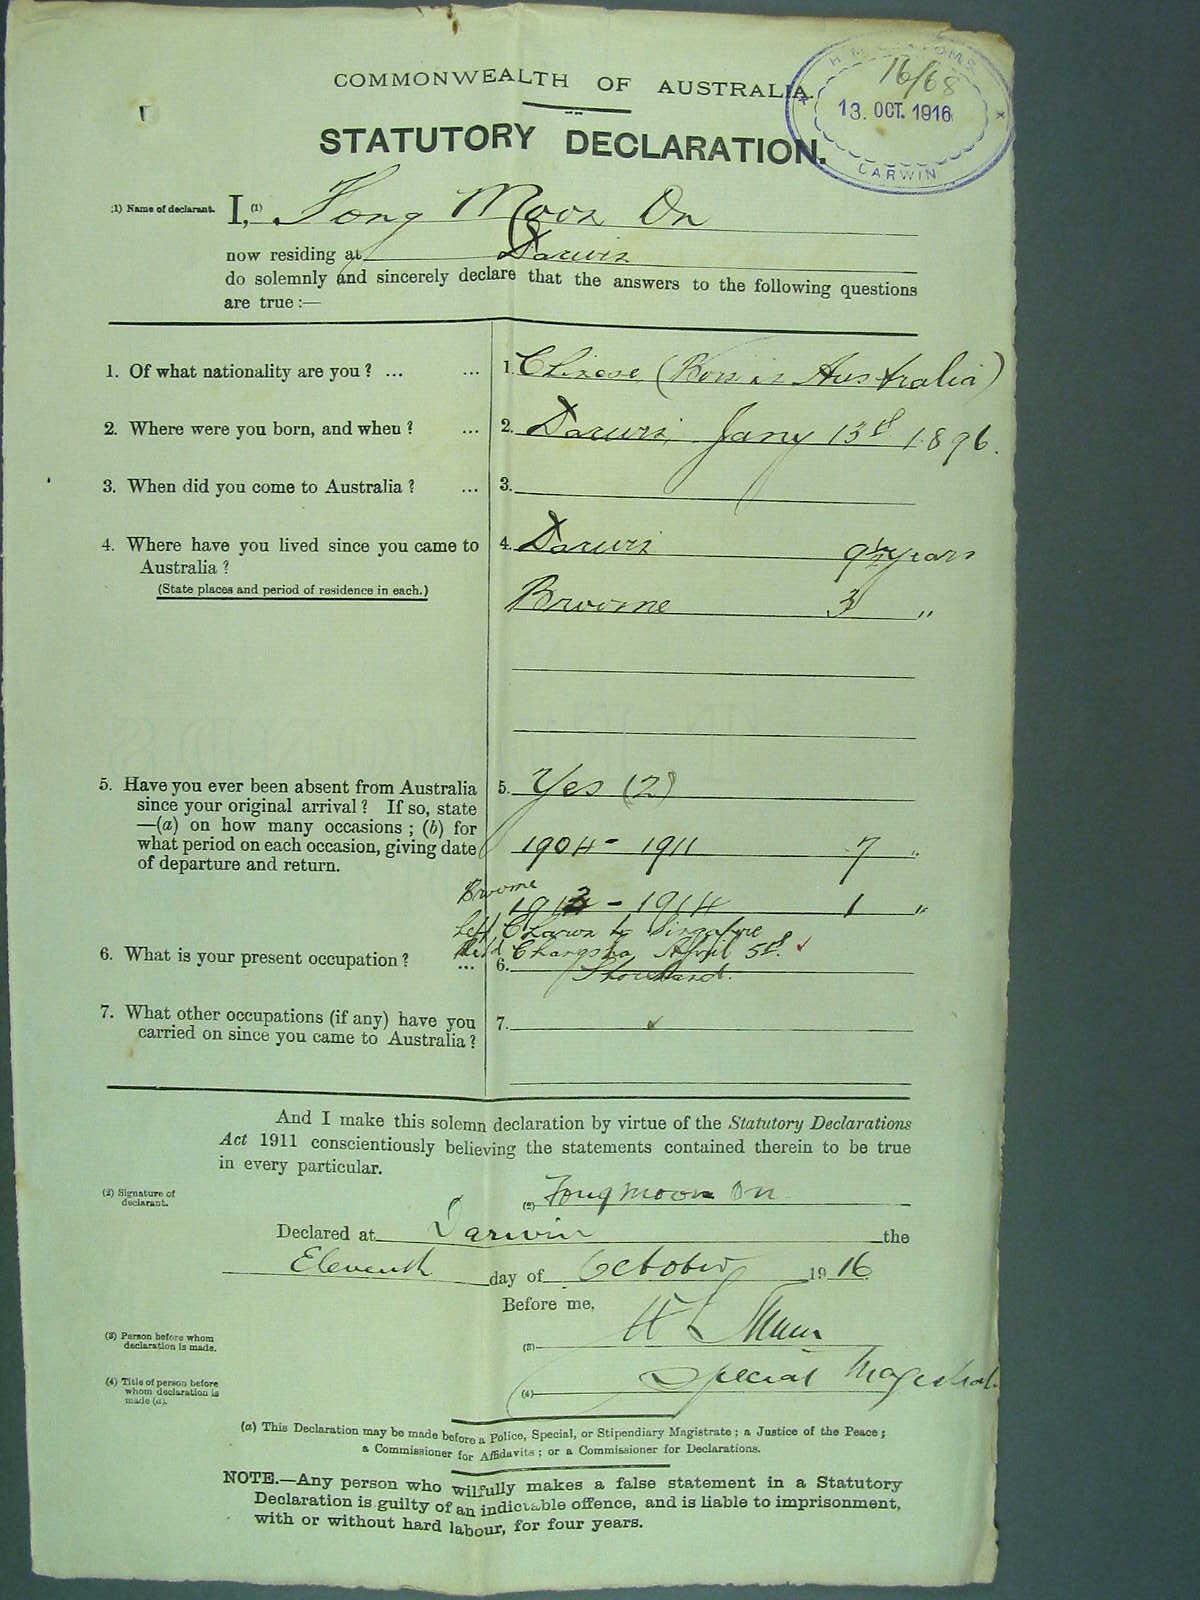 COMMONWEALTH OF AUSTRALIA.
H.M. CUSTOMS
16/68
13. OCT. 1916
DARWIN
STATUTORY DECLARATION.
(1) Name of declarant. I, (1) Fong Moon On
now residing at Darwin
do solemnly and sincerely declare that the answers to the following questions
are true :—
1. Of what nationality are you ? ... ... 1. Chinese (Born in Australia)
2. Where were you born, and when ? ... 2. Darwin, Jany 13th 1896.
3. When did you come to Australia ? ... 3.
4. Where have you lived since you came to 4. Darwin 9½ years
Australia ?
(State places and period of residence in each.) Broome 3 "
5. Have you ever been absent from Australia 5. Yes (2)
since your original arrival ? If so, state
—(a) on how many occasions ; (b) for
what period on each occasion, giving date 1904 - 1911 7 "
of departure and return.
Broome 1913 - 1914 1 "
left Charon to Singapore
Changsha April 5th.
6. What is your present occupation ? ... 6.
7. What other occupations (if any) have you 7.
carried on since you came to Australia ?
And I make this solemn declaration by virtue of the Statutory Declarations
Act 1911 conscientiously believing the statements contained therein to be true
in every particular.
(2) Signature of
declarant. (2) Fong moon On
Declared at Darwin the
Eleventh day of October 1916
Before me,
(3) Person before whom
declaration is made. (3) H L
(4) Title of person before
whom declaration is
made (a). (4) Special Magistrate
(a) This Declaration may be made before a Police, Special, or Stipendiary Magistrate ; a Justice of the Peace ;
a Commissioner for Affidavits ; or a Commissioner for Declarations.
NOTE.—Any person who wilfully makes a false statement in a Statutory
Declaration is guilty of an indictable offence, and is liable to imprisonment,
with or without hard labour, for four years.